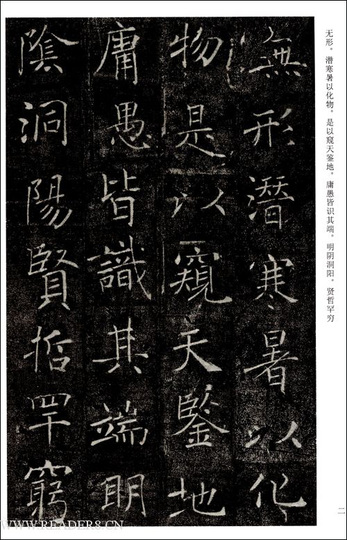 无形，潜寒暑以化物，是以窥天鉴地，庸愚皆识其端，明阴洞阳，贤哲罕穷
無形潛寒暑以化
物是以窺天鑒地
庸愚皆識其端明
陰洞陽賢哲罕窮
二
WWW.READER8.CN